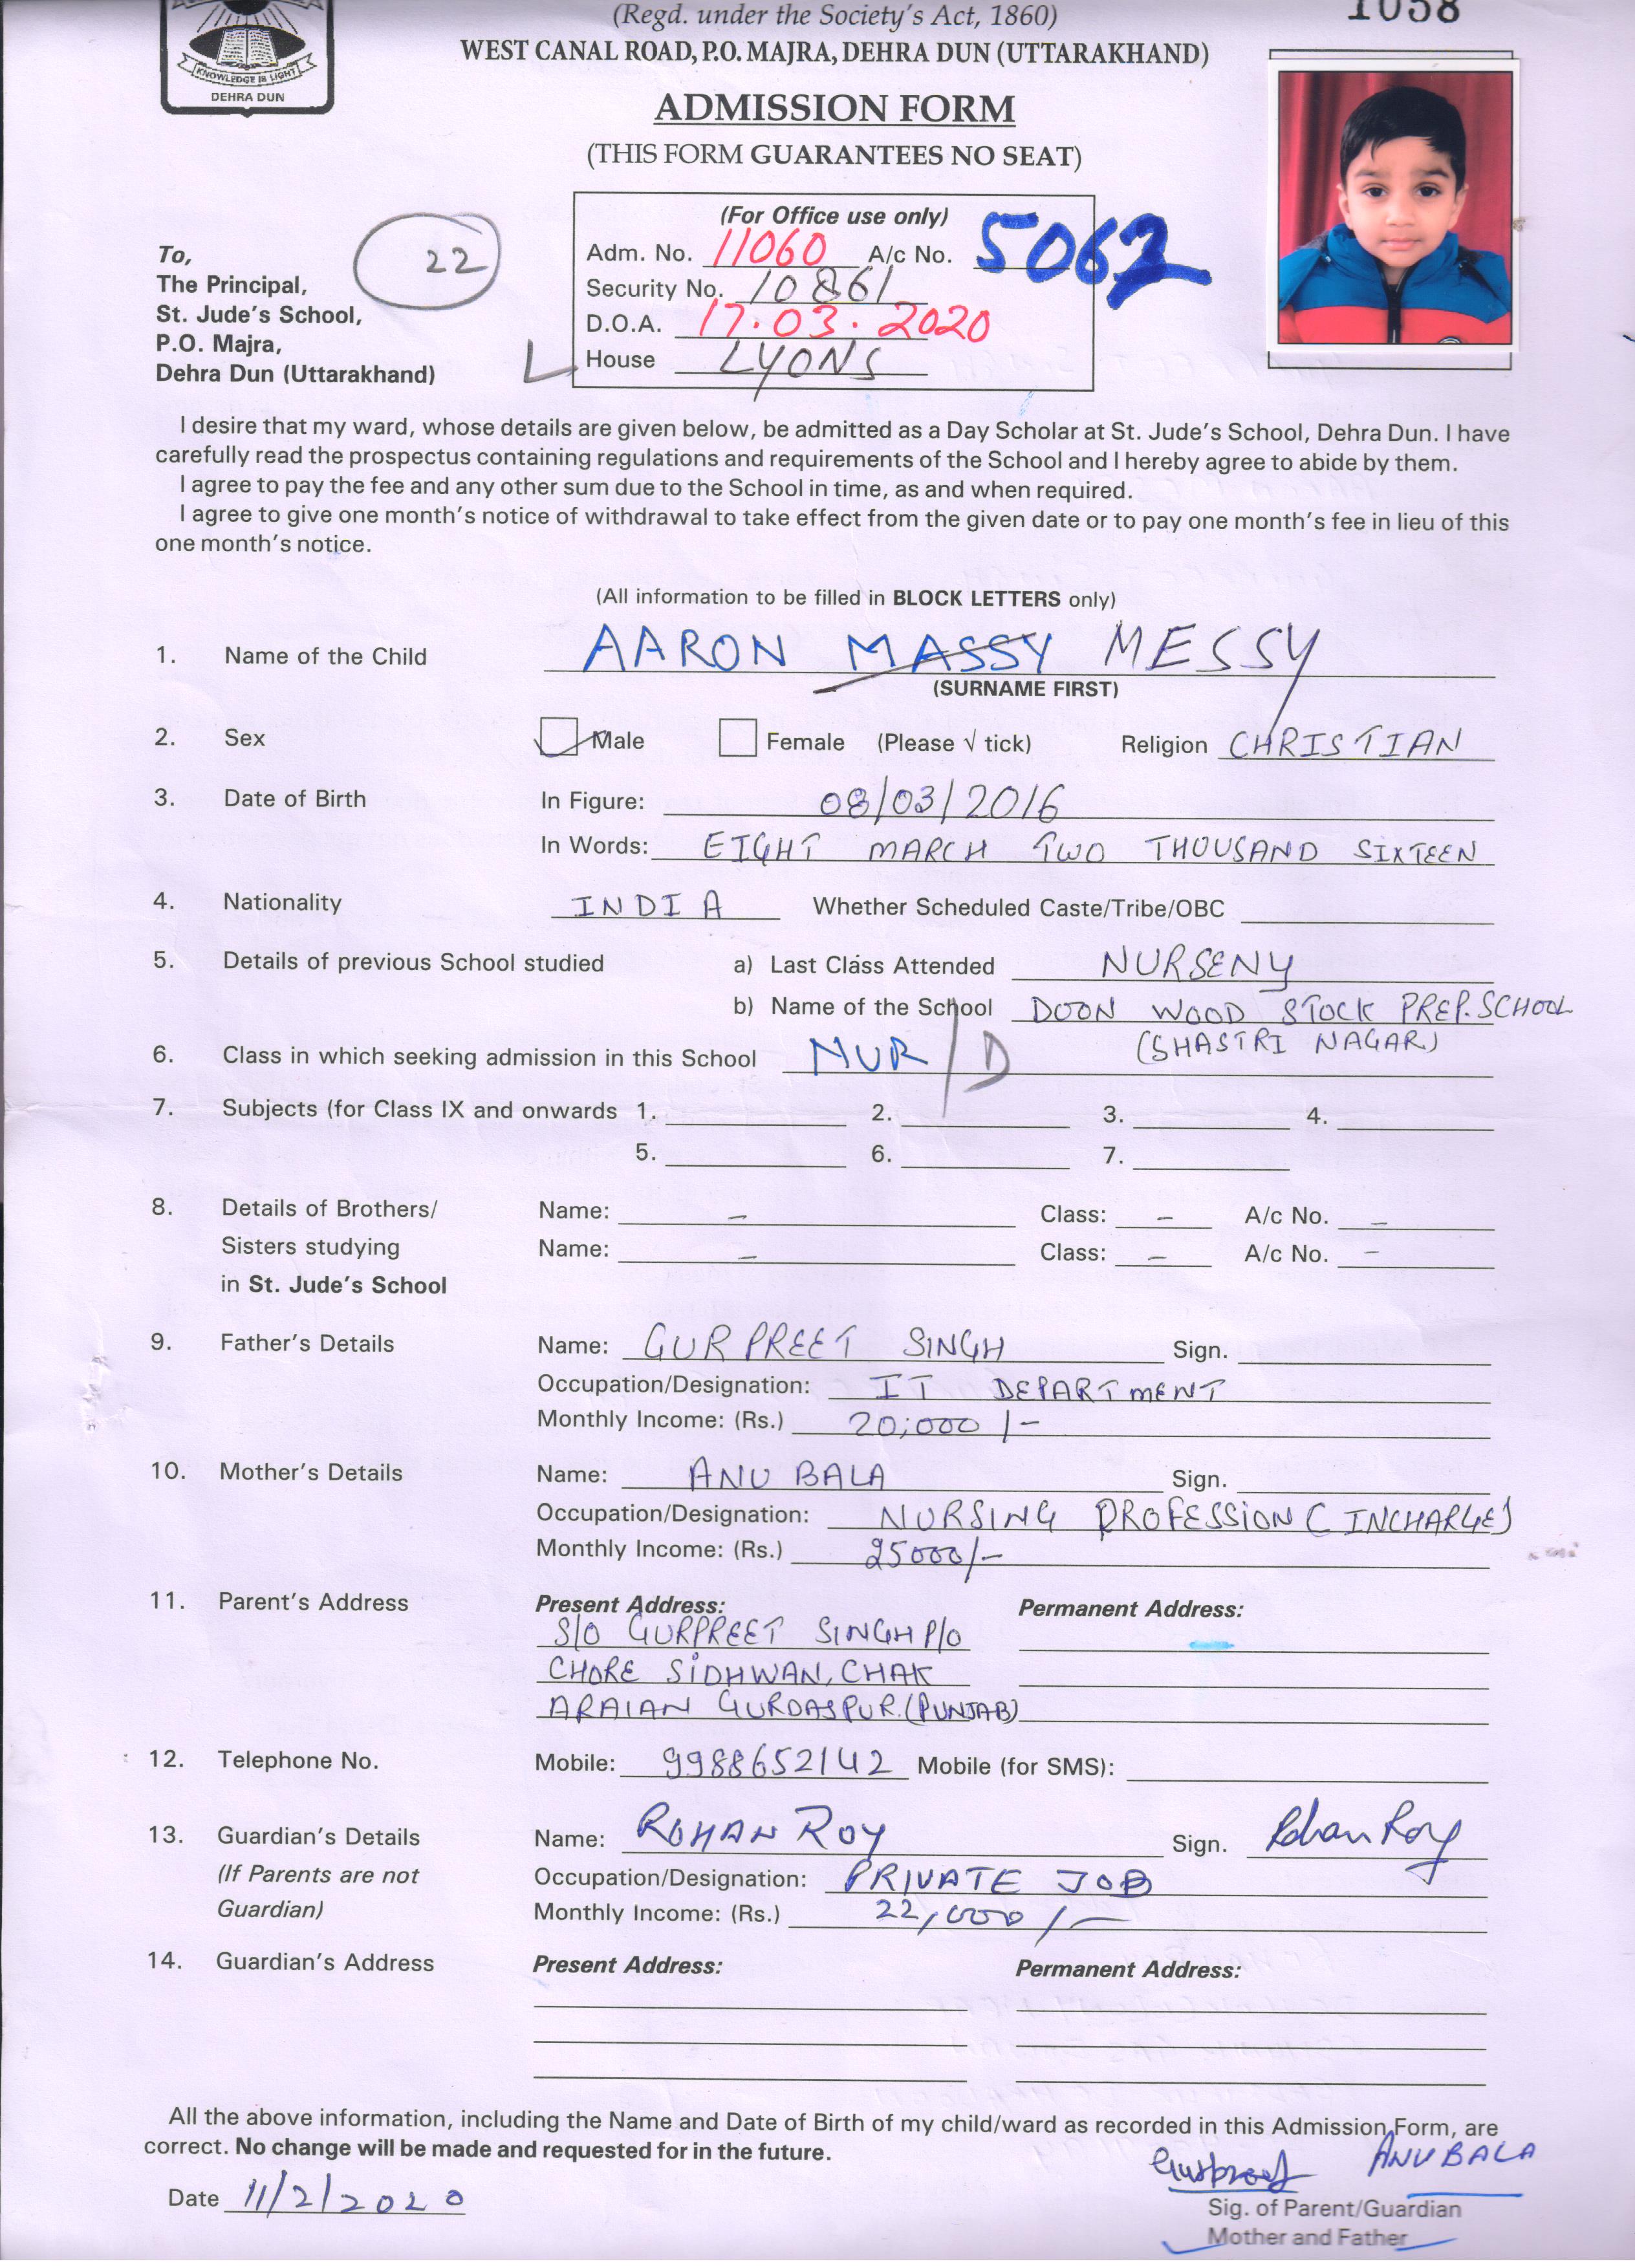 (Regd. under the Society's Act, 1860)
1058
WEST CANAL ROAD, P.O. MAJRA, DEHRA DUN (UTTARAKHAND)
KNOWLEDGE IS LIGHT
DEHRA DUN
ADMISSION FORM
(THIS FORM GUARANTEES NO SEAT)
To,
The Principal,
St. Jude's School,
P.O. Majra,
Dehra Dun (Uttarakhand)
22
(For Office use only)
Adm. No. 11060 A/c No. 5062
Security No. 10861
D.O.A. 17.03.2020
House LYONS
I desire that my ward, whose details are given below, be admitted as a Day Scholar at St. Jude's School, Dehra Dun. I have
carefully read the prospectus containing regulations and requirements of the School and I hereby agree to abide by them.
I agree to pay the fee and any other sum due to the School in time, as and when required.
I agree to give one month's notice of withdrawal to take effect from the given date or to pay one month's fee in lieu of this
one month's notice.
(All information to be filled in BLOCK LETTERS only)
1. Name of the Child AARON MASSY MESSY
(SURNAME FIRST)
2. Sex Male Female (Please √ tick) Religion CHRISTIAN
3. Date of Birth In Figure: 08/03/2016
In Words: EIGHT MARCH TWO THOUSAND SIXTEEN
4. Nationality INDIA Whether Scheduled Caste/Tribe/OBC
5. Details of previous School studied a) Last Class Attended NURSENY
b) Name of the School DOON WOOD STOCK PREP. SCHOOL
(SHASTRI NAGAR)
6. Class in which seeking admission in this School NUR/D
7. Subjects (for Class IX and onwards 1. 2. 3. 4.
5. 6. 7.
8. Details of Brothers/ Name: – Class: – A/c No. –
Sisters studying Name: – Class: – A/c No. –
in St. Jude's School
9. Father's Details Name: GURPREET SINGH Sign.
Occupation/Designation: IT DEPARTMENT
Monthly Income: (Rs.) 20,000/-
10. Mother's Details Name: ANU BALA Sign.
Occupation/Designation: NURSING PROFESSION (INCHARGE)
Monthly Income: (Rs.) 25000/-
11. Parent's Address Present Address: Permanent Address:
S/O GURPREET SINGH P/O
CHORE SIDHWAN, CHAK
ARAIAN GURDASPUR.(PUNJAB)
12. Telephone No. Mobile: 9988652142 Mobile (for SMS):
13. Guardian's Details Name: ROHAN ROY Sign. Rohan Roy
(If Parents are not Occupation/Designation: PRIVATE JOB
Guardian) Monthly Income: (Rs.) 22,000/-
14. Guardian's Address Present Address: Permanent Address:
All the above information, including the Name and Date of Birth of my child/ward as recorded in this Admission Form, are
correct. No change will be made and requested for in the future.
Gurpreet ANU BALA
Date 11/2/2020
Sig. of Parent/Guardian
Mother and Father